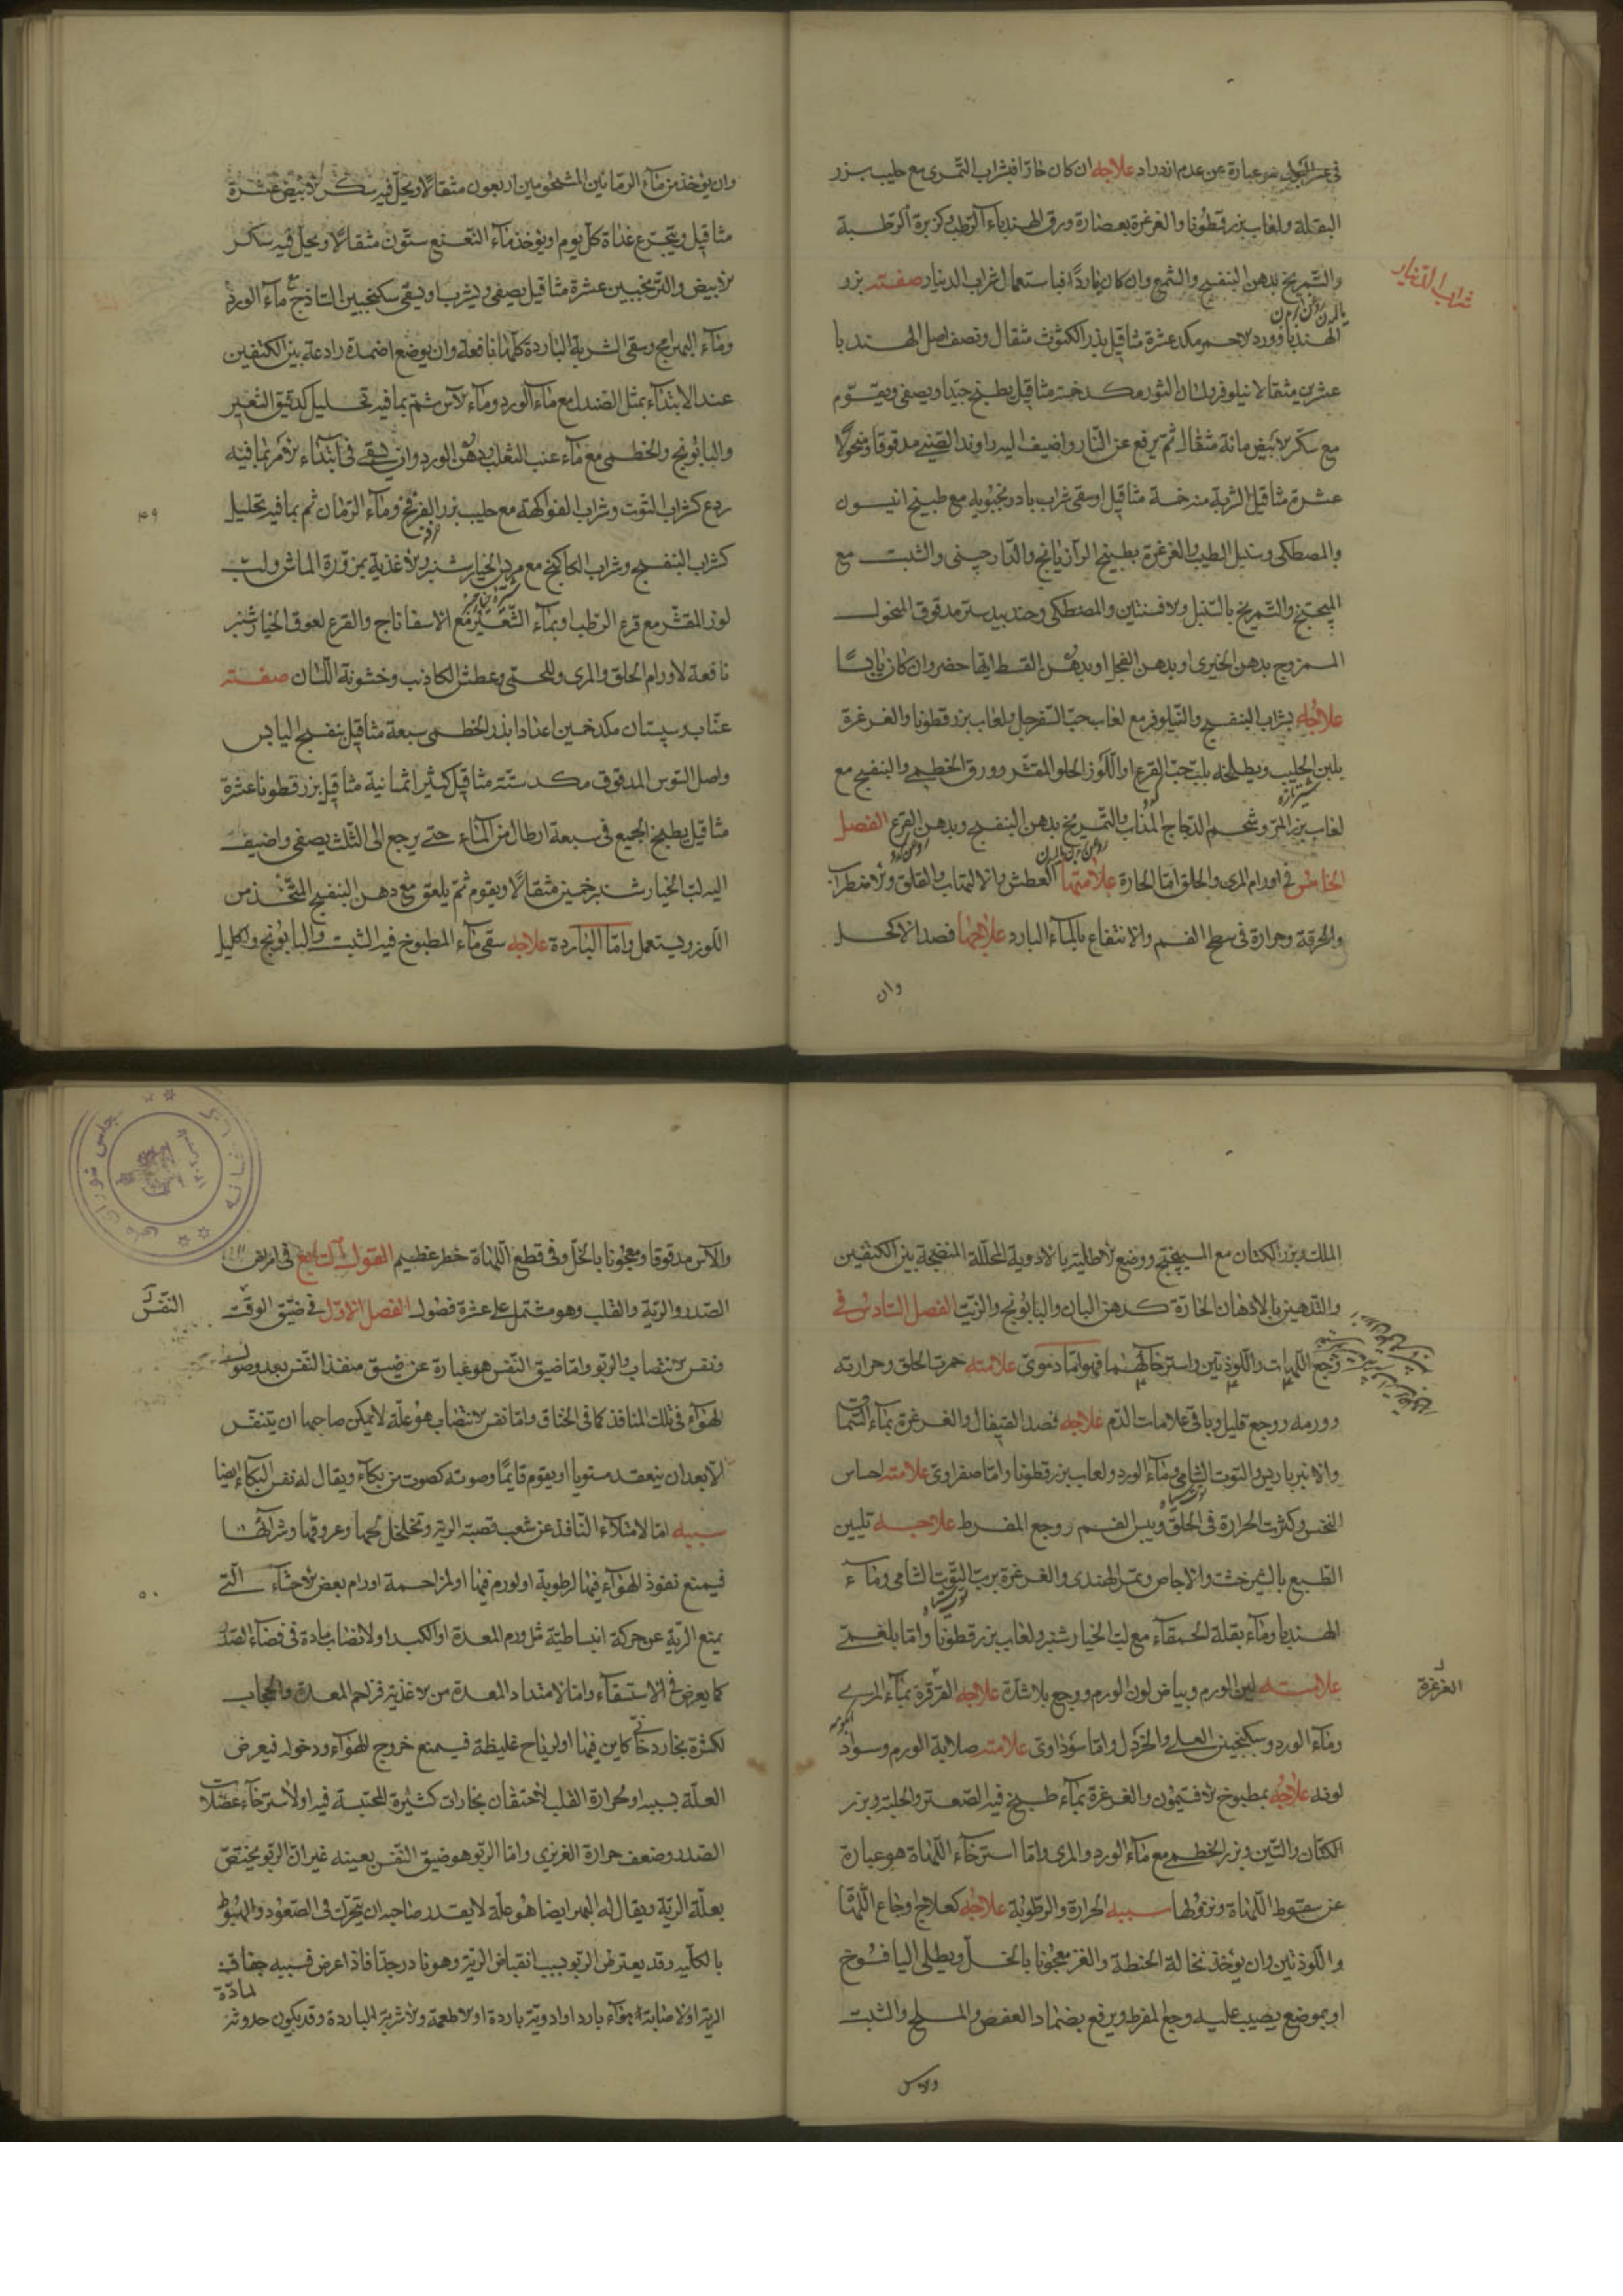 في عسر البلع هو عبارة عن عدم ازدراد علاجه ان كان حارّا فبشراب التمرى مع حليب بزر
البقلة ولعاب بزر قطونا والغرغرة بعصارة ورق الهندباء الرطب وكزبرة الرطبة
والتمريخ بدهن البنفسج والشمع وان كان باردًا فباستعمال شراب الدينار صفته بزر
شراب الدينار
الهندبا وورد الاحمر مكد عشرة مثاقيل بذر الكثوث مثقال ونصف اصل الهندبا
عشرين مثقالا نيلوفر لسان الثور مكد خمسة مثاقيل يطبخ جيّدا ويصفى ويقوّم
مع سكر الابيض مائة مثقال ثم يرفع عن النار واضيف اليه راوند الصيني مدقوقا منخولًا
عشرة مثاقيل الشربة منه خمسة مثاقيل اوسقى شراب بادرنجبويه مع طبيخ انيسون
والمصطكى وسنبل الطيب والغرغرة بطبيخ الرازيانج والدارچينى والشبت مع
الميبختج والتمريخ بالسنبل والافسنتين والمصطكى وجندبيدستر مدقوق المنخول
الممزوج بدهن الخيرى او بدهن الفجل او بدهن القسط ايها حضر وان كان يابسًا
علاجه بشراب البنفسج والنيلوفر مع لعاب حبّ السفرجل ولعاب بزر قطونا والغرغرة
بلبن الحليب ويطلخه بلبّ حبّ القرع او اللّوز الحلو المقشّر وورق الخطمى والبنفسج مع
لعاب بزر المرّ وشحم الدجاج المذاب والتمريخ بدهن البنفسج وبدهن القرع الفصل
الخامس في اورام المرى والحلق امّا الحارة علامتها العطش والالتهاب والقلق والاضطراب
والحرقة وحرارة في سطح الفم والانتفاع بالماء البارد علاجها فصد الاكحل
وان
وان يؤخذ من ماء الرمانين المشحومين اربعون مثقالًا ويحلّ فيه سكر الابيض عشرة
مثاقيل ويتجرّع غداة كلّ يوم او يؤخذ ماء النعنع ستّون مثقالًا ويحلّ فيه سكر
الابيض والترنجبين عشرة مثاقيل يصفى ويشرب اويسقى سكنجبين الساذج مع ماء الورد
وماء البهرامج وسقى الشربة الباردة كلّها نافعة وان يوضع اضمدة رادعة بين الكتفين
عند الابتداء بمثل الصندل مع ماء الورد وماء الاس ثم بما فيه تحليل كدقيق الشعير
والبابونج والخطمى مع ماء عنب الثعلب ودهن الورد وان يسقى في ابتداء الامر بما فيه
ردع كشراب التوت وشراب الفواكهة مع حليب بزر الفرفخ وماء الرمان ثم بما فيه تحليل
۴۹
كشراب البنفسج وشراب الكاكنج مع مرس الخيارشنبر والاغذية بمزوّرة الماش ولبّ
لوز المقشّر مع قرع الرطب او بماء الشّعير مع الاسفاناج والقرع لعوق الخيارشنبر
نافعة لاورام الحلق والمرى وللحمّى وعطش الكاذب وخشونة اللسان صفته
عنّاب وسپستان مكد خمسين اعدادا بذر الخطمى سبعة مثاقيل بنفسج اليابس
واصل السوس المدقوق مكد ستّة مثاقيل كثيرا ثمانية مثاقيل بزر قطونا عشرة
مثاقيل يطبخ الجميع فى سبعة ارطال من الماء حتى يرجع الى الثلث يصفى واضيف
اليه لبّ الخيارشنبر خمسين مثقالًا ويقوم ثم يلعق مع دهن البنفسج المتّخذ من
اللوز ويستعمل وامّا الباردة علاجه سقى ماء المطبوخ فيه الشبت والبابونج واكليل
الملك وبزر الكتان مع الميبختج ووضع الاطلية بالادوية المحلّلة المنضجة بين الكتفين
والتدهين بالادهان الحارّة كدهن البان والبابونج والزيت الفصل السادس في
وجع اللّهات واللّوذتين واسترخائهما فهو امّا دموىّ علامته حمرت الحلق وحرارته
وورمه ووجع قليل وباقى علامات الدّم علاجه فصد القيفال والغرغرة بماء السّماق
والانبرباريس والتوت الشامى وماء الورد ولعاب بزر قطونا وامّا صفراوىّ علامته احساس
النخس وكثرت الحرارة فى الحلق ويبس الفم ووجع المفرط علاجه تليين
الطبع بالشيرخشت والاجاص وتمر الهندى والغرغرة بربّ التوت الشامى وماء
الهندبا وماء بقلة الحمقاء مع لبّ الخيارشنبر ولعاب بزر قطونا وامّا بلغمىّ
علامته لين الورم وبياض لون الورم ووجع بلا شدّة علاجه الغرغرة بماء المرى
الغرغرة
وماء الورد وسكنجبين العسلى والخردل وامّا سوداوىّ علامته صلابة الورم وسواد
لونه علاجه بمطبوخ الافتيمون والغرغرة بماء طبيخ فيه الصّعتر والحلبة وبزر
الكتان والتين وبزر الخطمى مع ماء الورد والمرى وامّا استرخاء اللّهاة هو عبارة
عن سقوط اللّهاة ونزولها سببه الحرارة والرطوبة علاجه كعلاج اوجاع اللّهات
واللّوذتين وان يؤخذ نخالة الحنطة والغز معجونا بالخلّ ويطلى اليافوخ
او بموضع يصيب عليه وجع المفرط ويرفع بضماد العفص والملح والشبت
والاس
والآس مدقوقا ومعجونا بالخلّ وفى قطع اللّهاة خطر عظيم القول السابع في امراض
الصّدر والريّة والقلب وهو مشتمل على عشرة فصول الفصل الاوّل فى ضيق الوقت
النفس
ونفس الانتصاب والربو وامّا ضيق النّفس هو عبارة عن ضيق منفذ النّفس بعد وصول
الهواء فى تلك المنافذ كما فى الخناق وامّا نفس الانتصاب هو علّة لا يمكن صاحبها ان يتنفّس
الّا بعد ان ينعقد مستويا او يقوم قائمًا وصوته كصوت من بكاء ويقال له نفس البكاء ايضا
سببه امّا لامتلاء النّافذ عن شعب قصبة الريّة وتخلخل لحمها وعروقها وشرائنها
فيمنع نفوذ الهواء فيها لرطوبة او لورم فيها او لمزاحمة اورام بعض الاحشاء الّتى
۵۰
يمنع الريّة عن حركة انبساطيّة مثل ورم المعدة او الكبد او لانصاب مادة فى فضاء الصّدر
كما يعرض فى الاستسقاء وامّا لامتداد المعدة من الاغذية فزاحم المعدة والحجاب
لكثرة بخار دخانى كاين فيها او لرياح غليظة فيمنع خروج الهواء ودخوله فيعرض
العلّة بسببه او لحرارة القلب لاحتقان بخارات كثيرة المحتبسة فيه او لاسترخاء عضلات
الصّدر وضعف حرارة الغريزى وامّا الربو هو ضيق النّفس بعينه غير انّ الربو يختصّ
بعلّة الريّة ويقال له البهر ايضا هو علّة لا يقدر صاحبه ان يتحرّك فى الصّعود والهبوط
بالكلّيه وقد يعترض الربو بسبب انقباض الريّة وهو نادر جدّا فاذا عرض فسببه جفاف
الريّة او لاصابة هواء بارد او ادوية باردة او الاطعمة والاشربة الباردة وقد يكون حدوثه